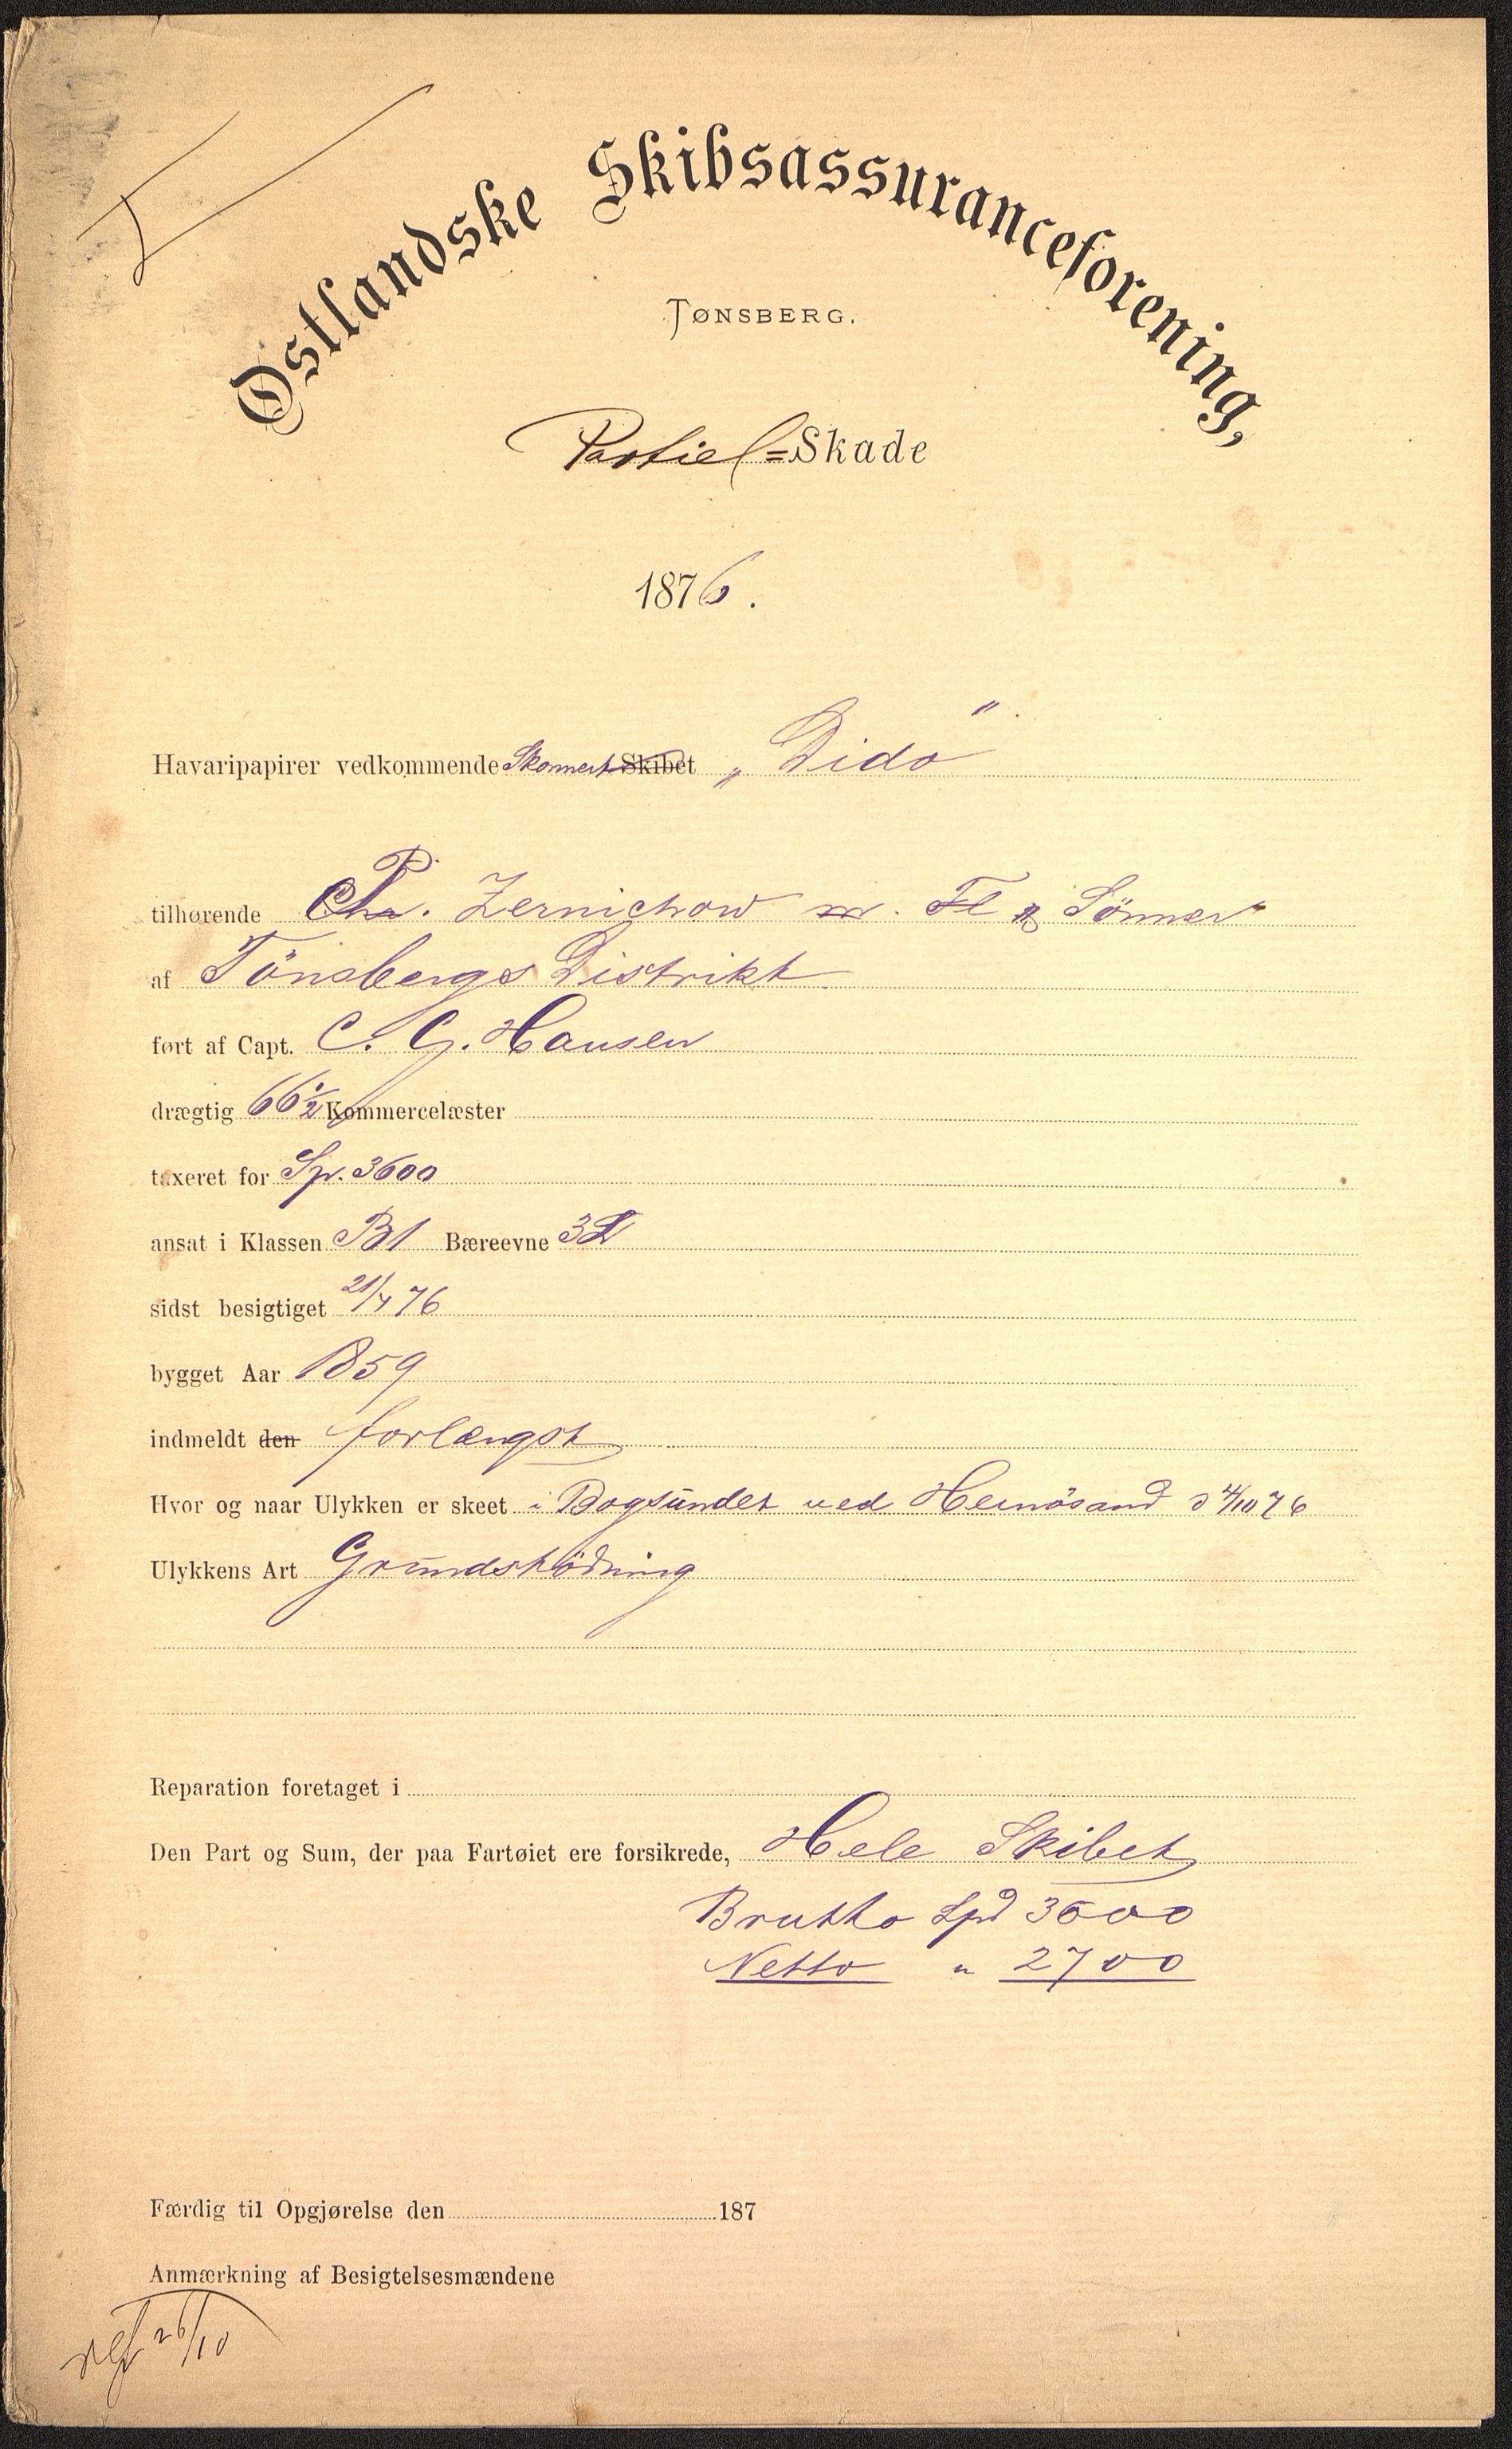 Østlandske Skibsassuranceforening,
TØNSBERG.
Partiel=Skade
1876.
Havaripapirer vedkommende Skonnert Skibet „Dido"
tilhørende P. Zernichow & Sönner
af Tönsbergs Distrikt
ført af Capt. C. G. Hansen
drægtig 66½ Kommercelæster
taxeret for Sp. 3600
ansat i Klassen B1 Bæreevne
sidst besigtiget 76
bygget Aar 1859
indmeldt den forlængst
Hvor og naar Ulykken er skeet i Bogsundet ved Hernösand d 4/10 76
Ulykkens Art Grundstödning
Reparation foretaget i
Den Part og Sum, der paa Fartøiet ere forsikrede, Hele Skibet
Brutto Spd 3600
Netto " 2700
Færdig til Opgjørelse den 187
Anmærkning af Besigtelsesmændene
26/10